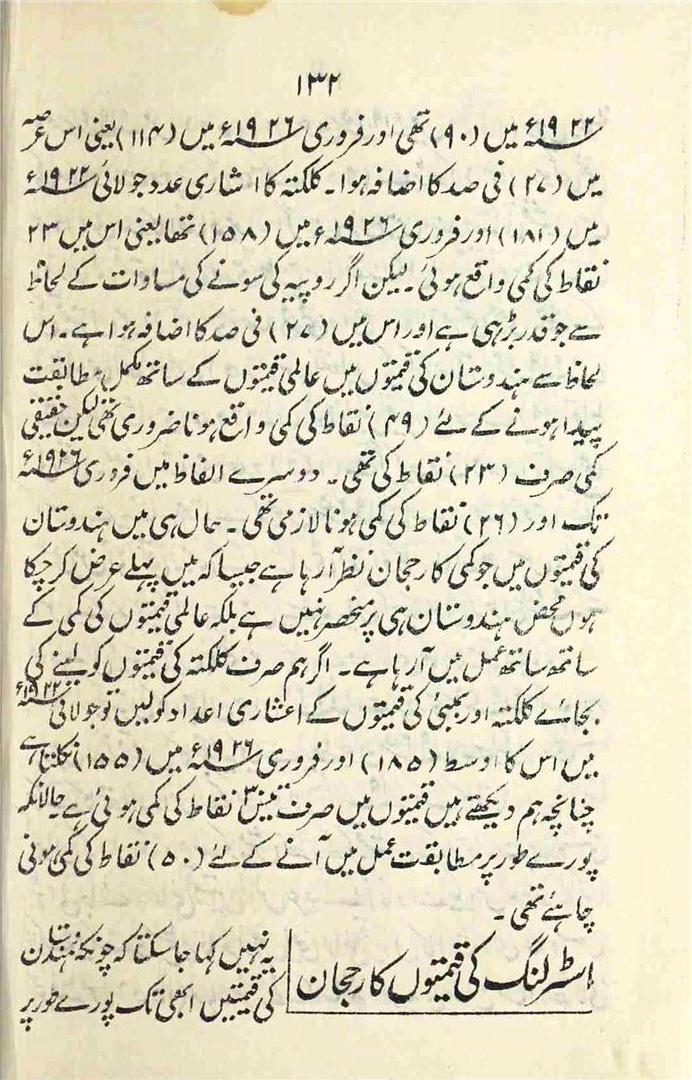 ۱۳۲
سنہ ۱۹۲۲ء میں (۹۰) تھی اور فروری سنہ ۱۹۲۶ء میں (۱۱۴) یعنی اس عرصہ
میں (۲۷) فی صد کا اضافہ ہوا۔ کلکتہ کا اشاری عدد جولائی سنہ ۱۹۲۲ء
میں (۱۸۱) اور فروری سنہ ۱۹۲۶ء میں (۱۵۸) تھا یعنی اس میں ۲۳
نقاط کی کمی واقع ہوئی۔ لیکن اگر روپیہ کی سونے کی مساوات کے لحاظ
سے جو قدر بڑہی ہے اور اس میں (۲۷) فی صد کا اضافہ ہوا ہے۔ اس
لحاظ سے ہندوستان کی قیمتوں میں عالمی قیمتوں کے ساتھ مکمل مطابقت
پیدا ہونے کے لئے (۴۹) نقاط کی کمی واقع ہونا ضروری تھی لیکن حقیقی
کمی صرف (۲۳) نقاط کی تھی۔ دوسرے الفاظ میں فروری سنہ ۱۹۲۶ء
تک اور (۲۶) نقاط کی کمی ہونا لازمی تھی۔ حال ہی میں ہندوستان
کی قیمتوں میں جو کمی کا رجحان نظر آرہا ہے جیسا کہ میں پہلے عرض کرچکا
ہوں محض ہندوستان ہی پر منحصر نہیں ہے بلکہ عالمی قیمتوں کی کمی کے
ساتھ ساتھ عمل میں آرہا ہے۔ اگر ہم صرف کلکتہ کی قیمتوں کو لینے کی
بجائے کلکتہ اور بمبئی کی قیمتوں کے اعشاری اعداد کو لیں تو جولائی سنہ ۱۹۲۲ء
میں اس کا اوسط (۱۸۵) اور فروری سنہ ۱۹۲۶ء میں (۱۵۵) نکلتا ہے
چنانچہ ہم دیکھتے ہیں قیمتوں میں صرف تیس ۳۰ نقاط کی کمی ہوئی ہے حالانکہ
پورے طور پر مطابقت عمل میں آنے کے لئے (۵۰) نقاط کی کمی ہونی
چاہئے تھی۔
اسٹرلنگ کی قیمتوں کا رجحان
یہ نہیں کہا جاسکتا کہ چونکہ ہندوستان
کی قیمتیں ابھی تک پورے طور پر